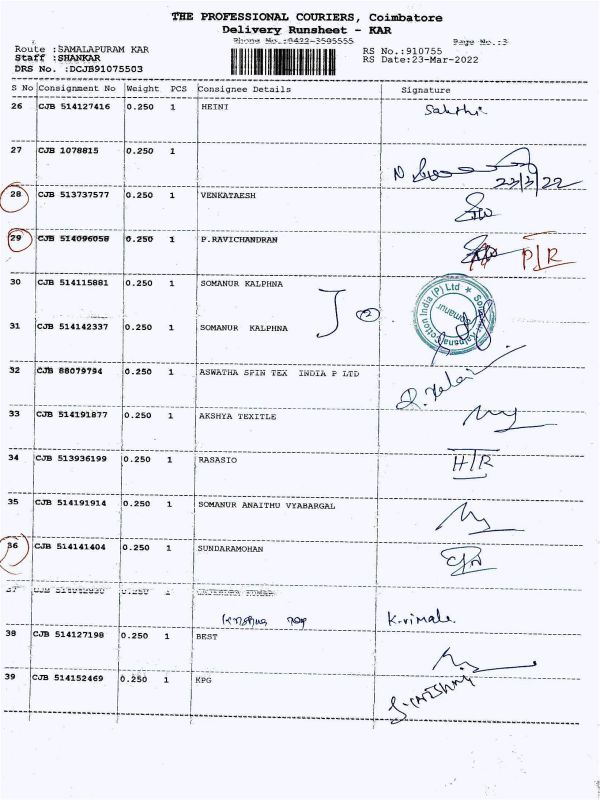 THE PROFESSIONAL COURIERS, Coimbatore
Delivery Runsheet - KAR
Phone No.:0422-3505555 Page No.:3
Route :SAMALAPURAM KAR RS No.:910755
Staff :SHANKAR RS Date:23-Mar-2022
DRS No. :DCJB91075503
S No Consignment No Weight PCS Consignee Details Signature
26 CJB 514127416 0.250 1 HEINI Sakthi
27 CJB 1078815 0.250 1
23/3/22
28 CJB 513737577 0.250 1 VENKATAESH
29 CJB 514096058 0.250 1 P.RAVICHANDRAN P/R
30 CJB 514115881 0.250 1 SOMANUR KALPHNA
31 CJB 514142337 0.250 1 SOMANUR KALPHNA
32 CJB 88079794 0.250 1 ASWATHA SPIN TEX INDIA P LTD
33 CJB 514191877 0.250 1 AKSHYA TEXITLE
34 CJB 513936199 0.250 1 RASASIO H/R
35 CJB 514191914 0.250 1 SOMANUR ANAITHU VYABARGAL
36 CJB 514141404 0.250 1 SUNDARAMOHAN
37 CJB 0.250 1 KUMAR
K.vimala
38 CJB 514127198 0.250 1 BEST
39 CJB 514152469 0.250 1 KPG